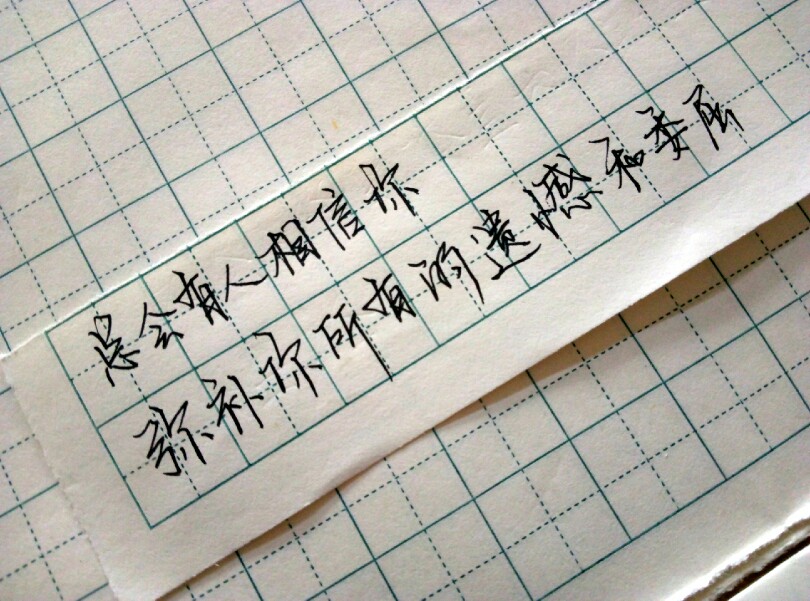 总会有人相信你
弥补你所有的遗憾和委屈